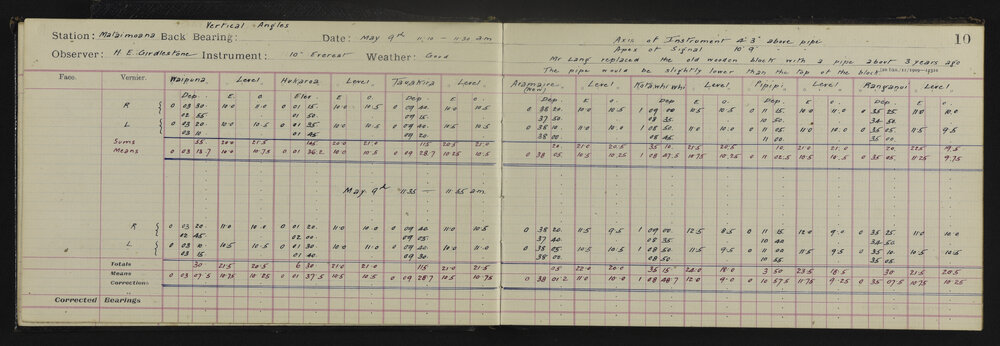 Vertical Angles
Station: Mataimoana Back Bearing: Date: May 9th 11.10 — 11.30 a.m
Observer: H. E. Girdlestone Instrument: 10" Everest Weather: Good
Axis of Instrument 4' 3" above pipe
Apex of Signal 10' 9"
10
Mr Lang replaced the old wooden block with a pipe about 3 years ago
The pipe would be slightly lower than the top of the block
Face. Vernier. Waipuna Level Hukaroa Level Tauakira Level Aramaire (New) Level Kotawhiwhi Level Pipipi Level Ranganui Level
Dep. E. O. Elev. E O. Dep E O. Dep. E O. Dep. E O. Dep. E O. Dep. E O.
R 0 03 30 11.0 11.0 0 01 15 11.0 10.5 0 09 40 11.0 10.5 0 38 20 11.0 10.5 1 09 00 11.5 10.5 0 11 15 11.0 11.0 0 35 25 11.0 10.0
02 55 01 50 09 15 37 50 08 35 10 50 34 50
L 0 03 20 11.0 10.5 0 01 35 11.0 10.5 0 09 40 10.5 10.5 0 38 10 11.0 10.0 1 08 50 11.0 10.0 0 11 05 11.0 10.0 0 35 05 11.5 9.5
03 10 01 45 09 20 38 00 08 45 11 00 35 00
Sums 55 22.0 21.5 145 22.0 21.0 115 20.5 21.0 20 21.0 20.5 35 10 21.5 20.5 10 21.0 21.0 20 22.5 19.5
Means 0 03 13.7 11.0 10.75 0 01 36.2 11.0 10.5 0 09 28.7 10.25 10.5 0 38 05 10.5 10.25 1 08 47.5 10.75 10.25 0 11 02.5 10.5 10.5 0 35 05 11.25 9.75
May 9th 11.35 — 11.55 a.m
R 0 03 20 11.0 10.0 0 01 20 11.0 10.0 0 09 40 11.0 10.5 0 38 20 11.5 9.5 1 09 00 12.5 8.5 0 11 15 12.0 9.0 0 35 25 11.0 10.0
02 45 02 00 09 05 37 40 08 35 10 40 34 50
L 0 03 10 10.5 10.5 0 01 30 10.0 11.0 0 09 40 10.0 11.0 0 38 05 10.5 10.5 1 08 50 11.5 9.5 0 11 00 11.5 9.5 0 35 10 10.5 10.5
03 15 01 40 09 30 38 00 08 50 10 55 35 05
Totals 30 21.5 20.5 6 30 21.0 21.0 115 21.0 21.5 05 22.0 20.0 35 15 24.0 18.0 3 50 23.5 18.5 30 21.5 20.5
Means 0 03 07.5 10.75 10.25 0 01 37.5 10.5 10.5 0 09 28.7 10.5 10.75 0 38 01.2 11.0 10.0 1 08 48.7 12.0 9.0 0 10 57.5 11.75 9.25 0 35 07.5 10.75 10.25
Correction:
Corrected Bearings